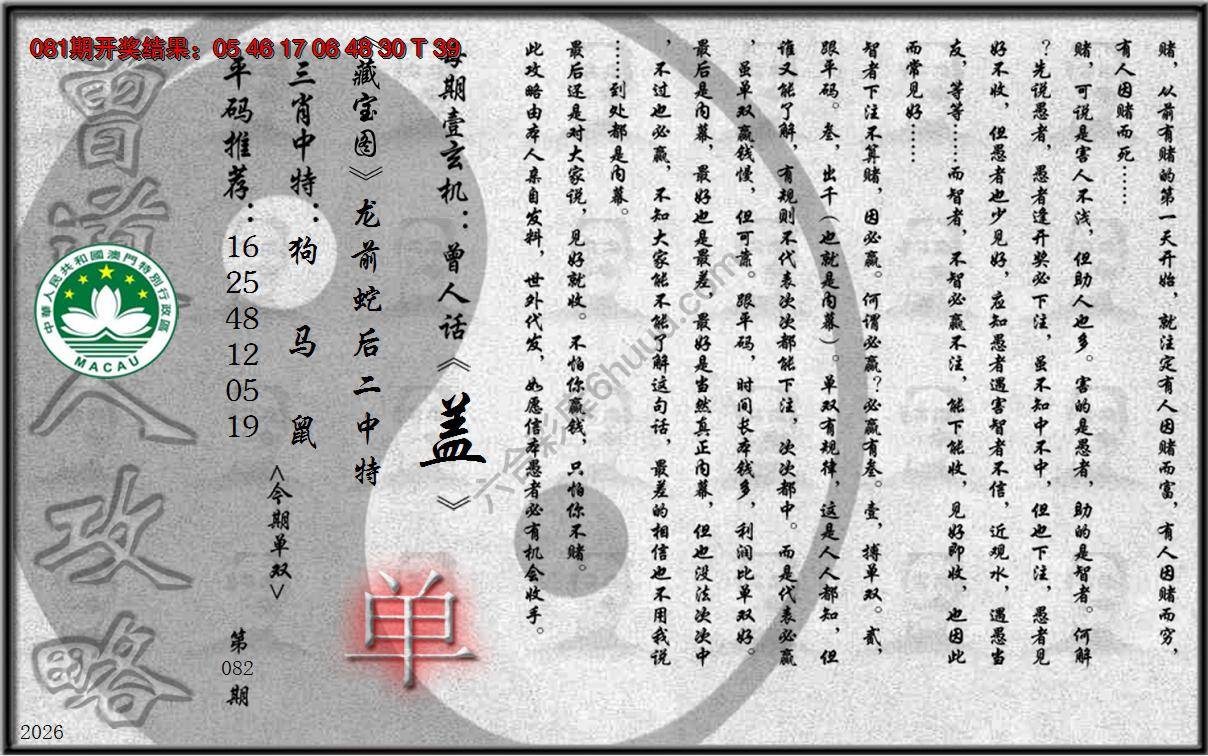 081期开奖结果：05 46 17 06 48 30 T 39
赌，从前有赌的第一天开始，就注定有人因赌而富，有人因赌而穷，
有人因赌而死……
赌，可说是害人不浅，但助人也多。害的是愚者，助的是智者。何解
？先说愚者，愚者逢开奖必下注，虽不知中不中，但也下注，愚者见
好不收，但愚者也少见好，应知愚者遇害智者不信，近观水，遇愚当
友，等等……而智者，不智必赢不注，能下能收，见好即收，也因此
而常见好……
智者下注不算赌，因必赢。何谓必赢？必赢有叁。壹，搏单双。贰，
跟平码。叁，出千（也就是内幕）。单双有规律，这是人人都知，但
谁又能了解，有规则不代表次次都能下注，次次都中。而是代表必赢
，虽单双赢钱慢，但可靠。跟平码，时间长本钱多，利润比单双好。
最后是内幕，最好也是最差，最好是当然真正内幕，但也没法次次中
，不过也必赢，不知大家能不能了解这句话，最差的相信也不用我说
……到处都是内幕。
最后还是对大家说，见好就收。不怕你赢钱，只怕你不赌。
此攻略由本人亲自发料，世外代发，如愿信本愚者必有机会收手。
每期壹玄机：曾人话《盖》
《藏宝图》龙前蛇后二中特
三肖中特：狗 马 鼠
平码推荐：16 25 48 12 05 19
<今期单双>
单
第
082
期
曾道人攻略
中華人民共和國澳門特別行政區
MACAU
六合彩库6huuu.com
2026